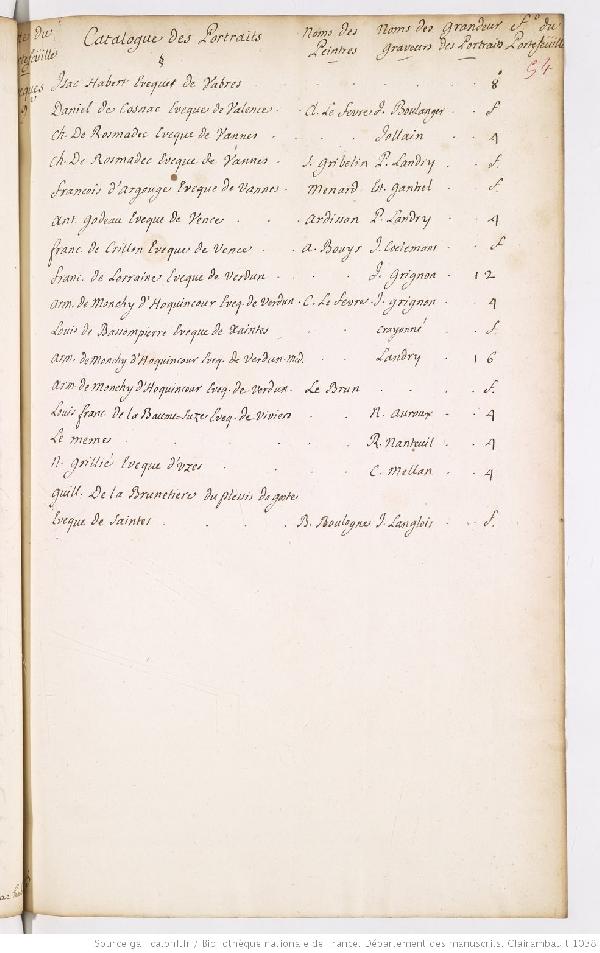 Catalogue des Portraits Noms des Peintres Noms des Graveurs Grandeur des Portraits f.º du Portefeuille
54
§
Isac Habert Evequt de Vabres . . . . 8
Daniel de Cosnac Eveque de Valence . Cl. Le fevre J. Boulanger . f.
Ch. De Rosmadec Eveque de Vannes . . . Jollain . . 4
Ch. De Rosmadec Eveque de Vannes . J. Gribelin P. Landry . . f.
francois d'Argouge Eveque de Vannes . Menard Et. Gantrel . . f.
Ant. godeau Eveque de Vence . . Ardisson P. Landry . . 4
franc. de Crillon Eveque de Vence . A. Bouys J. Coelemans . . f
franc. de Lorraine Eveque de Verdun . . . J. Grignon . . 12
Arm. de Monchy d'Hoquincour Eveq. de Verdun . C. Le fevre J. grignon . . 4
Louis de Bassompierre Eveque de Xaintes . . crayonné . f.
Arm. de Monchy d'Hoquincour Eveq. de Verdun . . . Landry . . 16
Arm. de Monchy d'Hoquincour Eveq. de Verdun . Le Brun . . . f.
Louis franc. de la Baume-Suze Eveq. de Viviers . . N. Auroux . . 4
Le memes . . . . . R. Nanteuil . . 4
N. Grillié Eveque d'Uzes . . . . C. Mellan . . 4
Guill. De la Brunetiere du plessis de geste
Eveque de Saintes . . . . B. Boulogne J. Langlois . . f.
Source gallica.bnf.fr / Bibliothèque nationale de France. Département des manuscrits. Clairambault 1038